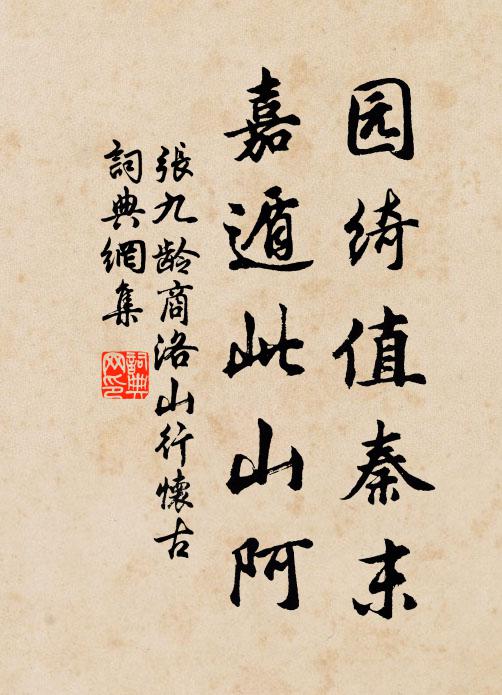 园绮值秦末
嘉遁此山阿
張九龄商洛山行懷古
詞典網集
詞典网印